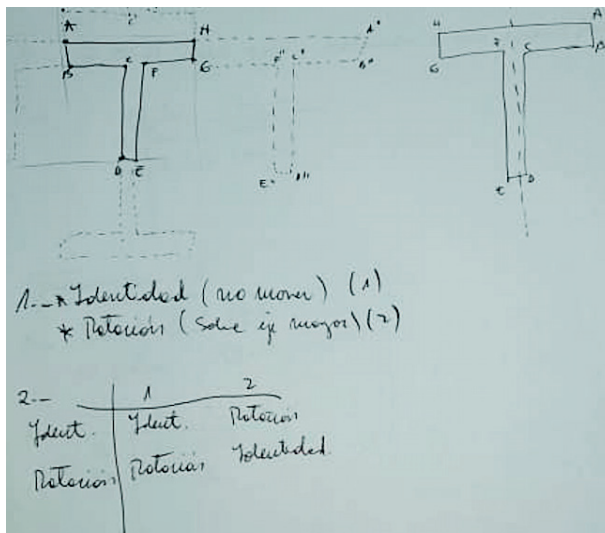 A H A'' H A
B C F G F'' C'' B'' G F C B
D E E'' D'' E D
1.-* Identidad (no mover) (1)
* Rotación (sobre eje mayor) (2)
2.-- 1 2
Ident. Ident. Rotación
Rotación Rotación Identidad.